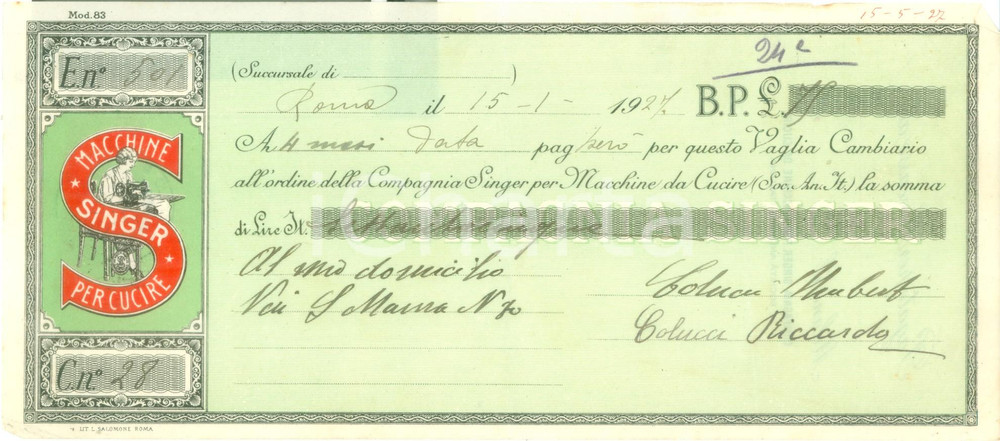 Mod. 83
15-5-27
E. n° 501
(Succursale di )
24e
Roma il 15-1- 1927 B.P. £. 75
MACCHINE
SINGER
PER CUCIRE
A 4 mesi data pagherò per questo Vaglia Cambiario
all'ordine della Compagnia Singer per Macchine da Cucire (Soc. An. It.) la somma
di Lire It. Settantacinque
Al mio domicilio
Via S Maura N 70
Colucci Umberto
Colucci Riccardo
C. n° 28
LIT. L. SALOMONE ROMA